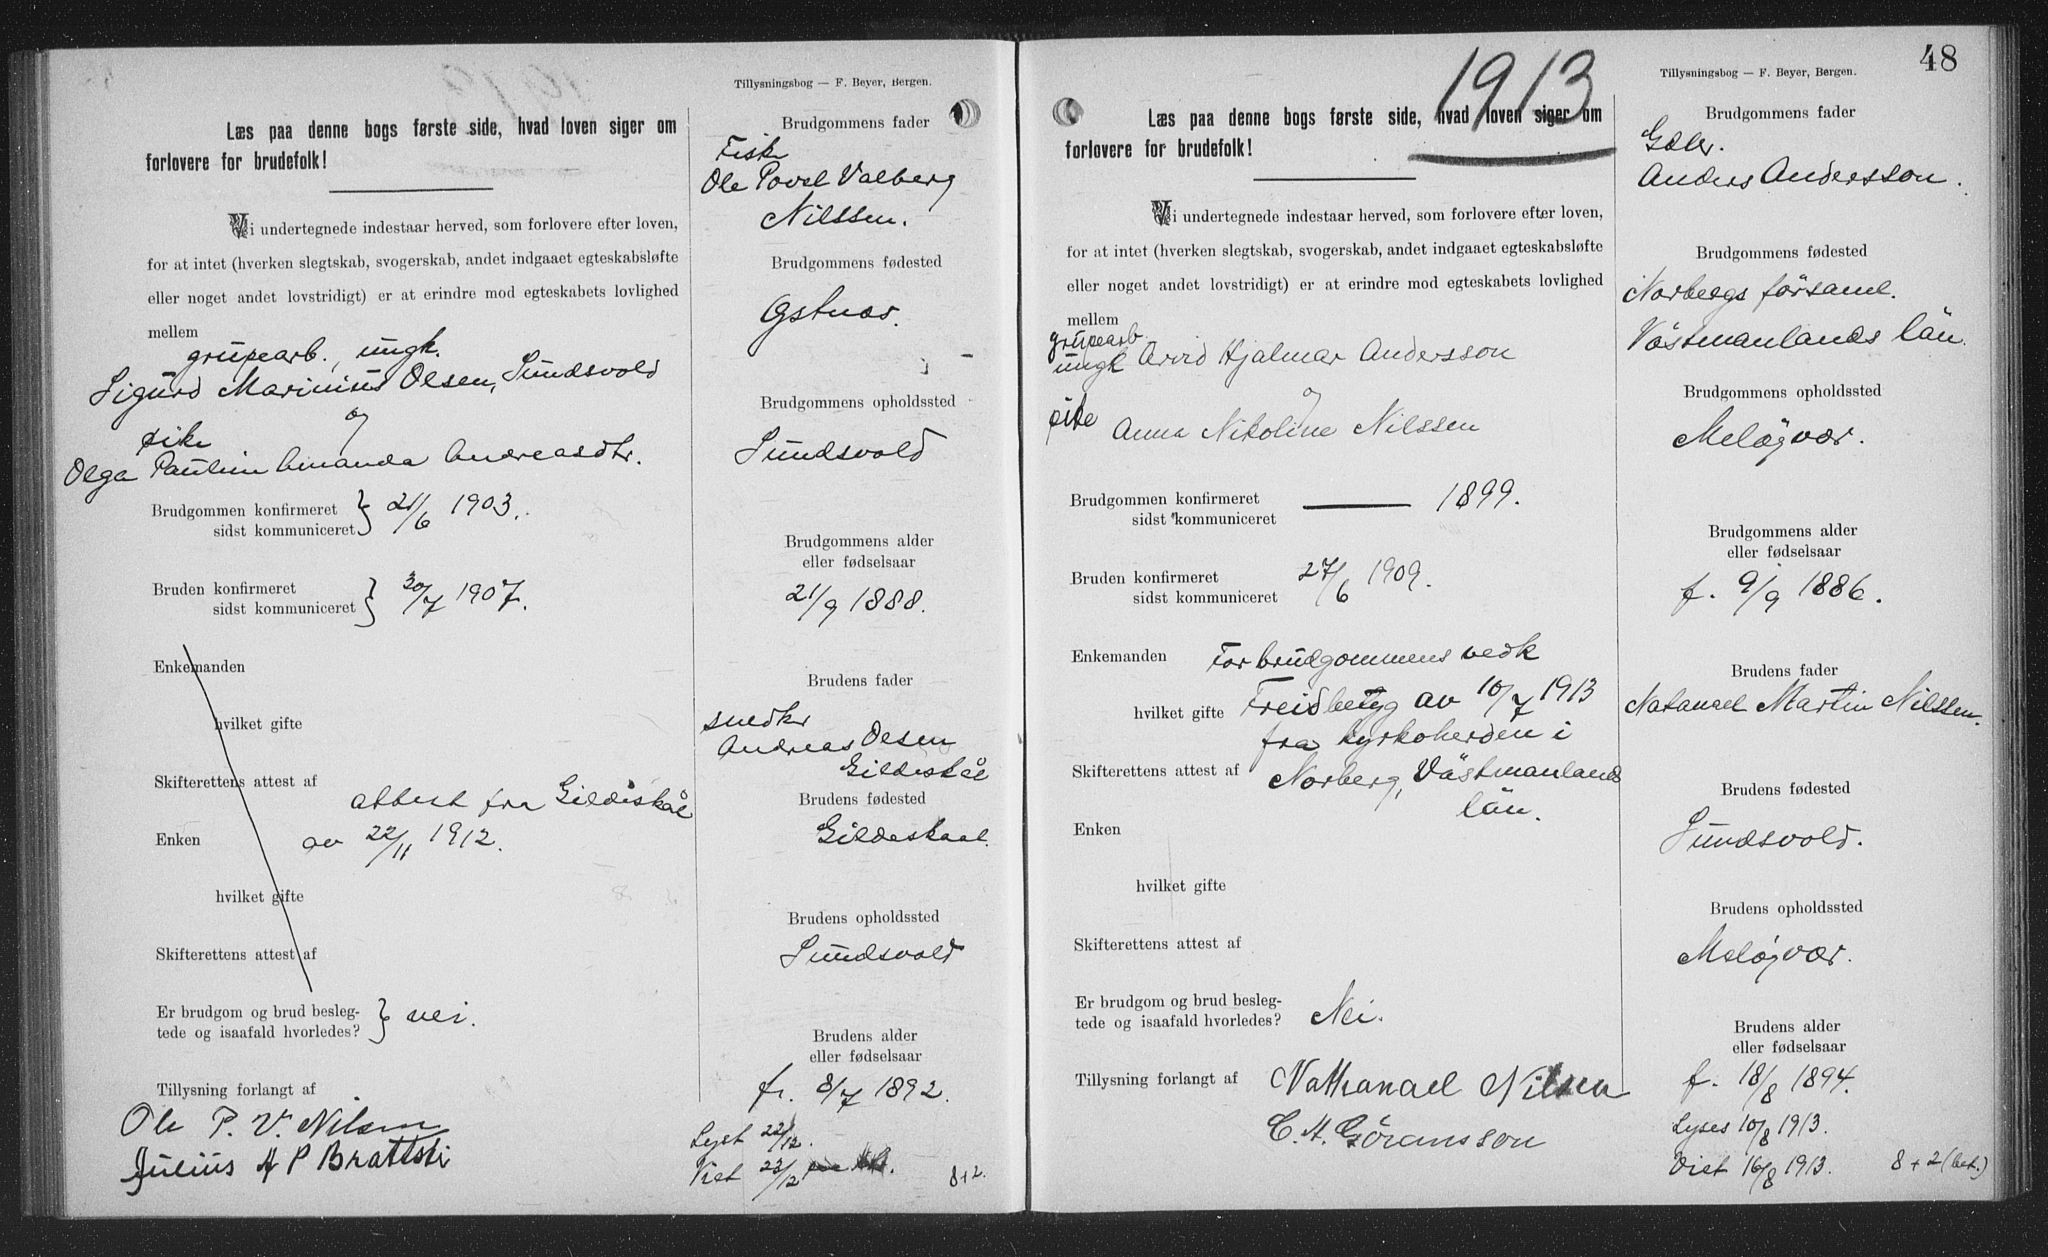 Tillysningsbog — F. Beyer, Bergen.
Læs paa denne bogs første side, hvad loven siger om
forlovere for brudefolk!
Vi undertegnede indestaar herved, som forlovere efter loven,
for at intet (hverken slegtskab, svogerskab, andet indgaaet egteskabsløfte
eller noget andet lovstridigt) er at erindre mod egteskabets lovlighed
mellem
grupearb., ungk.
Sigurd Marinius Olsen, Sundsvold
og
pike
Olga Paulin Amanda Andreasdtr.
Brudgommen konfirmeret
sidst kommuniceret } 21/6 1903.
Bruden konfirmeret
sidst kommuniceret } 30/7 1907.
Enkemanden
hvilket gifte
Skifterettens attest af
attest fra Gildeskål
Enken av 22/11 1912.
hvilket gifte
Skifterettens attest af
Er brudgom og brud besleg-
tede og isaafald hvorledes? } nei.
Tillysning forlangt af
Ole P. V. Nilsen
Julius A P Brattsti
Brudgommens fader
Fisk
Ole Povel Valberg
Nilssen.
Brudgommens fødested
Brudgommens opholdssted
Sundsvold
Brudgommens alder
eller fødselsaar
21/9 1888.
Brudens fader
snedkr
Andreas Olsen
Gildeskål
Brudens fødested
Gildeskaal.
Brudens opholdssted
Sundsvold
Brudens alder
eller fødselsaar
8/7 1892.
Lyst 22/12.
Viet 23/12
8+2.
48
1913
Tillysningsbog — F. Beyer, Bergen.
Læs paa denne bogs første side, hvad loven siger om
forlovere for brudefolk!
Vi undertegnede indestaar herved, som forlovere efter loven,
for at intet (hverken slegtskab, svogerskab, andet indgaaet egteskabsløfte
eller noget andet lovstridigt) er at erindre mod egteskabets lovlighed
mellem
grupearb
ungk Arvid Hjalmar Andersson
og
pike Anna Nikoline Nilssen
Brudgommen konfirmeret
sidst kommuniceret — 1899.
Bruden konfirmeret
sidst kommuniceret 27/6 1909.
Enkemanden For brudgommens vedk
hvilket gifte Freidbetyg av 10/7 1913
fra kyrkoherden i
Skifterettens attest af Norberg, Västmanlands
län.
Enken
hvilket gifte
Skifterettens attest af
Er brudgom og brud besleg-
tede og isaafald hvorledes? Nei.
Tillysning forlangt af Nathanael Nilsen
C. A. Göransson
Brudgommens fader
Anders Andersson.
Brudgommens fødested
Norbergs församl.
Västmanlands län.
Brudgommens opholdssted
Meløgvær.
Brudgommens alder
eller fødselsaar
f. 9/9 1886.
Brudens fader
Natanael Martin Nilssen.
Brudens fødested
Sundsvold.
Brudens opholdssted
Meløgvær.
Brudens alder
eller fødselsaar
f. 18/8 1894.
Lyses 10/8 1913.
Viet 16/8 1913. 8+2 (bet.)